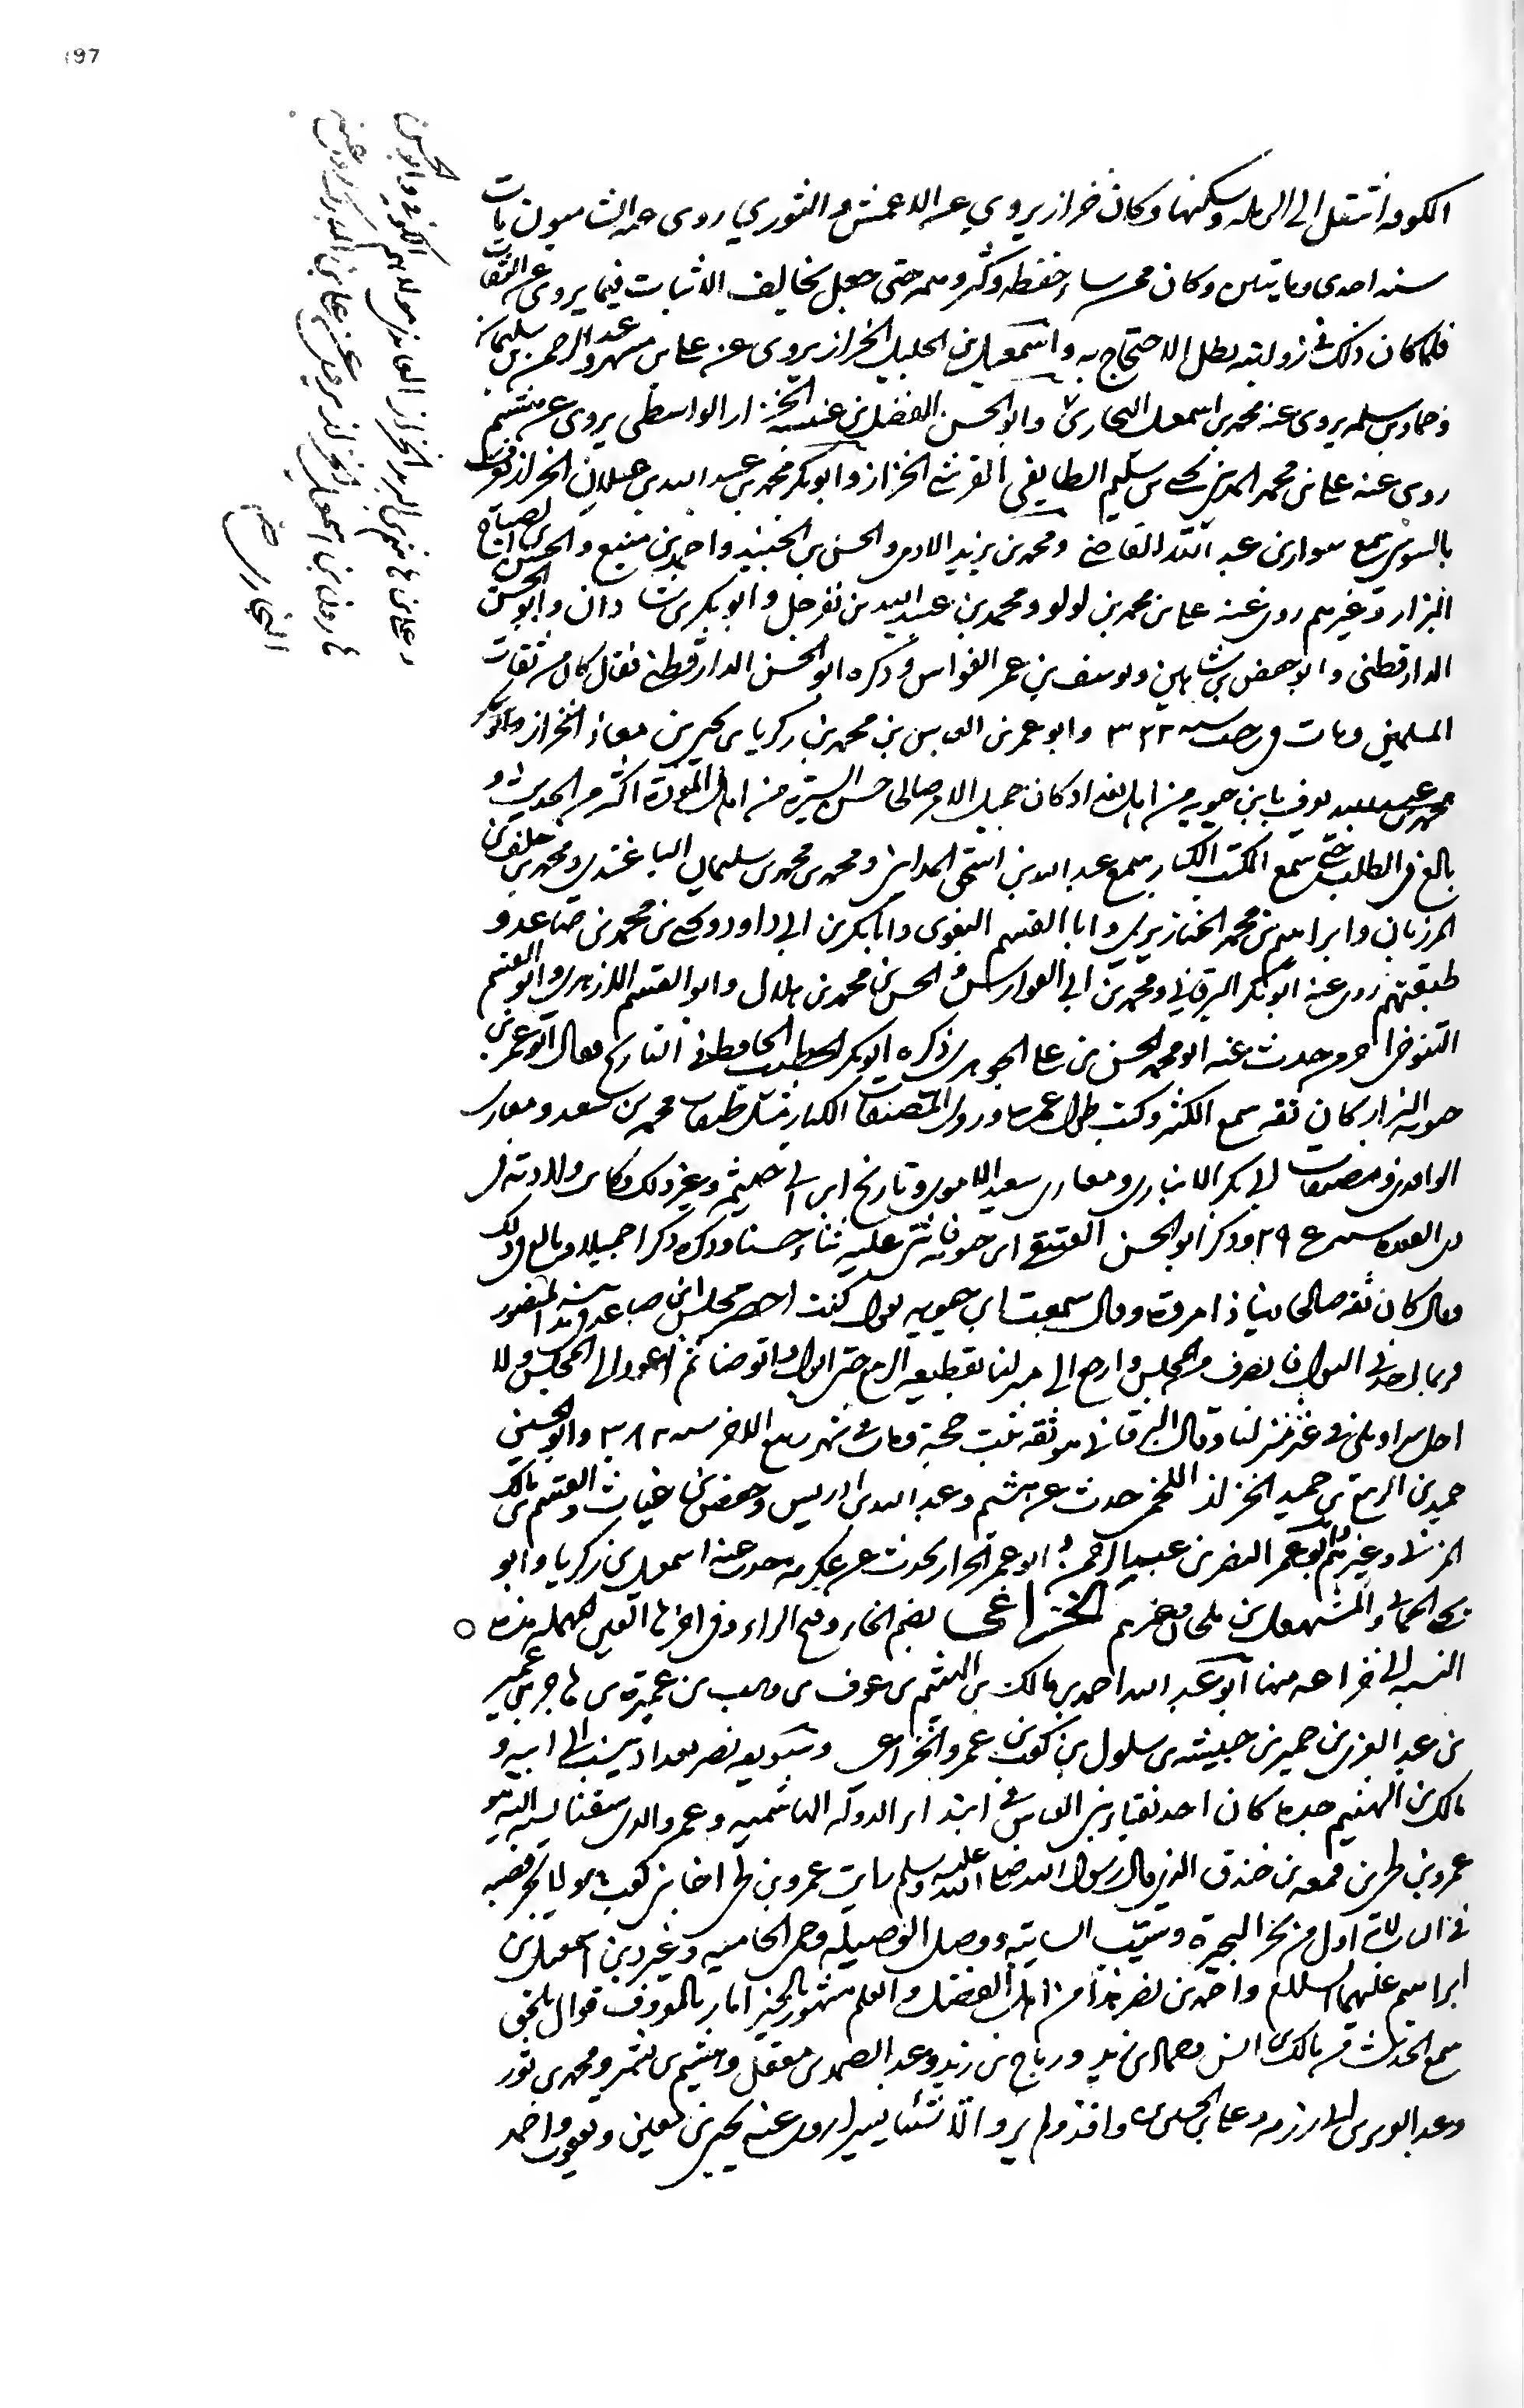 197
الكوفه انتقل الى الرمله وسكنها وكان خزاز يروي عن الاعمش والثوري روى عنه الشاميون مات
سنه احدى وماىتين وكان ممن ساء حفظه وكثر وهمه حتى جعل يخالف الاثبات فيما يروى عن الثقات
فلما كان ذلك في رواىته بطل الاحتجاج به واسمعيل بن الخليل الخزاز يروى عن على بن مسهر وعبد الرحمن بن سليمان
وحماد بن سلمه يروى عنه محمد بن اسمعيل البخارى وابو الحسن الفضل بن عنبسه الخزاز الواسطى يروى عن هشيم
روى عنه على بن محمد المدينى يحيى بن سليم الطايفى القرشى الخزاز وابو بكر محمد بن عبد الله بن عيلان الخزاز يعرف
بالسوسى سمع سوار بن عبد الله القاضى ومحمد بن يزيد الادمى والحسن بن الجنيد واحمد بن منيع والحسن بن الصباح
البزار وغيرهم روى عنه على بن محمد بن لولو ومحمد بن عبيد الله بن قفرجل وابو بكر بن شاذان وابو الحسن
الدارقطنى وابو حفص بن شاهين ويوسف بن عمر القواس وذكره ابو الحسن الدارقطنى فقال كان من ثقات
المسلمين ومات فى رجب سنه ٣٢٢ وابو عمر بن العباس بن محمد بن زكريا بن يحيى بن معاذ الخزاز
يعرف بابن حيويه من اهل بغداد كان جميل الامر صالحا حسن السيره من اهل المروة اكثر من الحديث و
بالغ فى الطلب حتى سمع الكتب الكبار سمع عبد الله بن اسحق المداينى ومحمد بن محمد بن سليمان الباغندى ومحمد بن خلف بن
المرزبان وابراهيم بن محمد الخنازيرى وابا القسم البغوى وابا بكر بن ابى داود ويحيى بن محمد بن صاعد و
طبقتهم روى عنه ابو بكر البرقانى ومحمد بن ابى الفوارس والحسن بن محمد بن الخلال وابو القسم الازهرى وابو القسم
التنوخى واخر من حدث عنه ابو محمد الحسن بن على الجوهرى ذكره ابو بكر الخطيب الحافظ فى التاريخ فقال ابو عمر بن
حيويه الخزاز كان ثقه سمع الكثير وكتب طول عمره وروى المصنفات الكبار مثل طبقات محمد بن سعد ومغازى
الواقدى ومصنفات ابى بكر الانبارى ومغازى سعيد الاموى وتاريخ ابن ابى خيثمه وغير ذلك وكان ولادته فى
ذى القعده سنه ٢٩٥ وذكر ابو الحسن العتيقى ابن حيويه فاثنى عليه ثناء حسنا وذكره ذكرا جميلا وبالغ فى ذلك
وقال كان ثقه صالحا دينا ذا مروة وقال سمعت ابن حيويه يقول كنت احضر مجلس ابن صاعد
وربما اخذنى البول فانصرف من المجلس وارجع الى منزلنا بقطيعه الربيع حتى ابول واتوضا ثم اعود الى المجلس ولا
احل سراويلى فى غير منزلنا وقال البرقانى هو ثقه ثبت حجة ومات فى شهر ربيع الاخر سنه ٣٨٢ وابو الحسن
حميد بن الربيع بن حميد الخزاز اللخمى حدث عن هشيم وعبد الله بن ادريس وحفص بن غياث والقسم بن مالك
المزنى وغيرهم وابو عمر النضر بن عبد الرحمن الخزاز يحدث عن عكرمه حدث عنه اسمعيل بن زكريا وابو
يحيى الحمانى والمشمعل بن ملحان وغيرهم الخزاعى بضم الخاء وفتح الزاء وفى اخرها العين المهمله هذه
النسبه الى خزاعه منها ابو عبد الله احمد بن مالك بن الهيثم بن عوف بن وهب بن عميرة بن هاجر بن عمير
بن عبد العزى بن حمير بن حبيشه بن سلول بن كعب بن عمرو الخزاعى وسويقه نصر ببغداد ينسب الى ابيه و
مالك بن الهيثم جده كان احد نقباء بنى العباس فى ابتداء الدوله الهاشميه وعمرو الذى سقنا نسبه اليه هو
عمرو بن لحى بن قمعه بن خندف الذى قال رسول الله صلى الله عليه وسلم رايت عمرو بن لحى اخا بنى كعب هولا يجر قصبه
فى النار لانه اول من بحر البحيرة وسيب السايبه ووصل الوصيله وحمى الحاميه وغير دين اسمعيل بن
ابراهيم عليهما السلام واحمد بن نصر هذا من اهل الفضل والعلم مشهور بالخير امار بالمعروف قوال بالحق
سمع الحديث من مالك بن انس وحماد بن زيد ورباح بن زيد وعبد الصمد بن معقل وهشيم بن بشير ومحمد بن ثور
وعبد العزيز بن ابى رزمه وعلى بن الحسين بن واقد ولم يرو الا شيئا يسيرا روى عنه يحيى بن معين ويعقوب واحمد